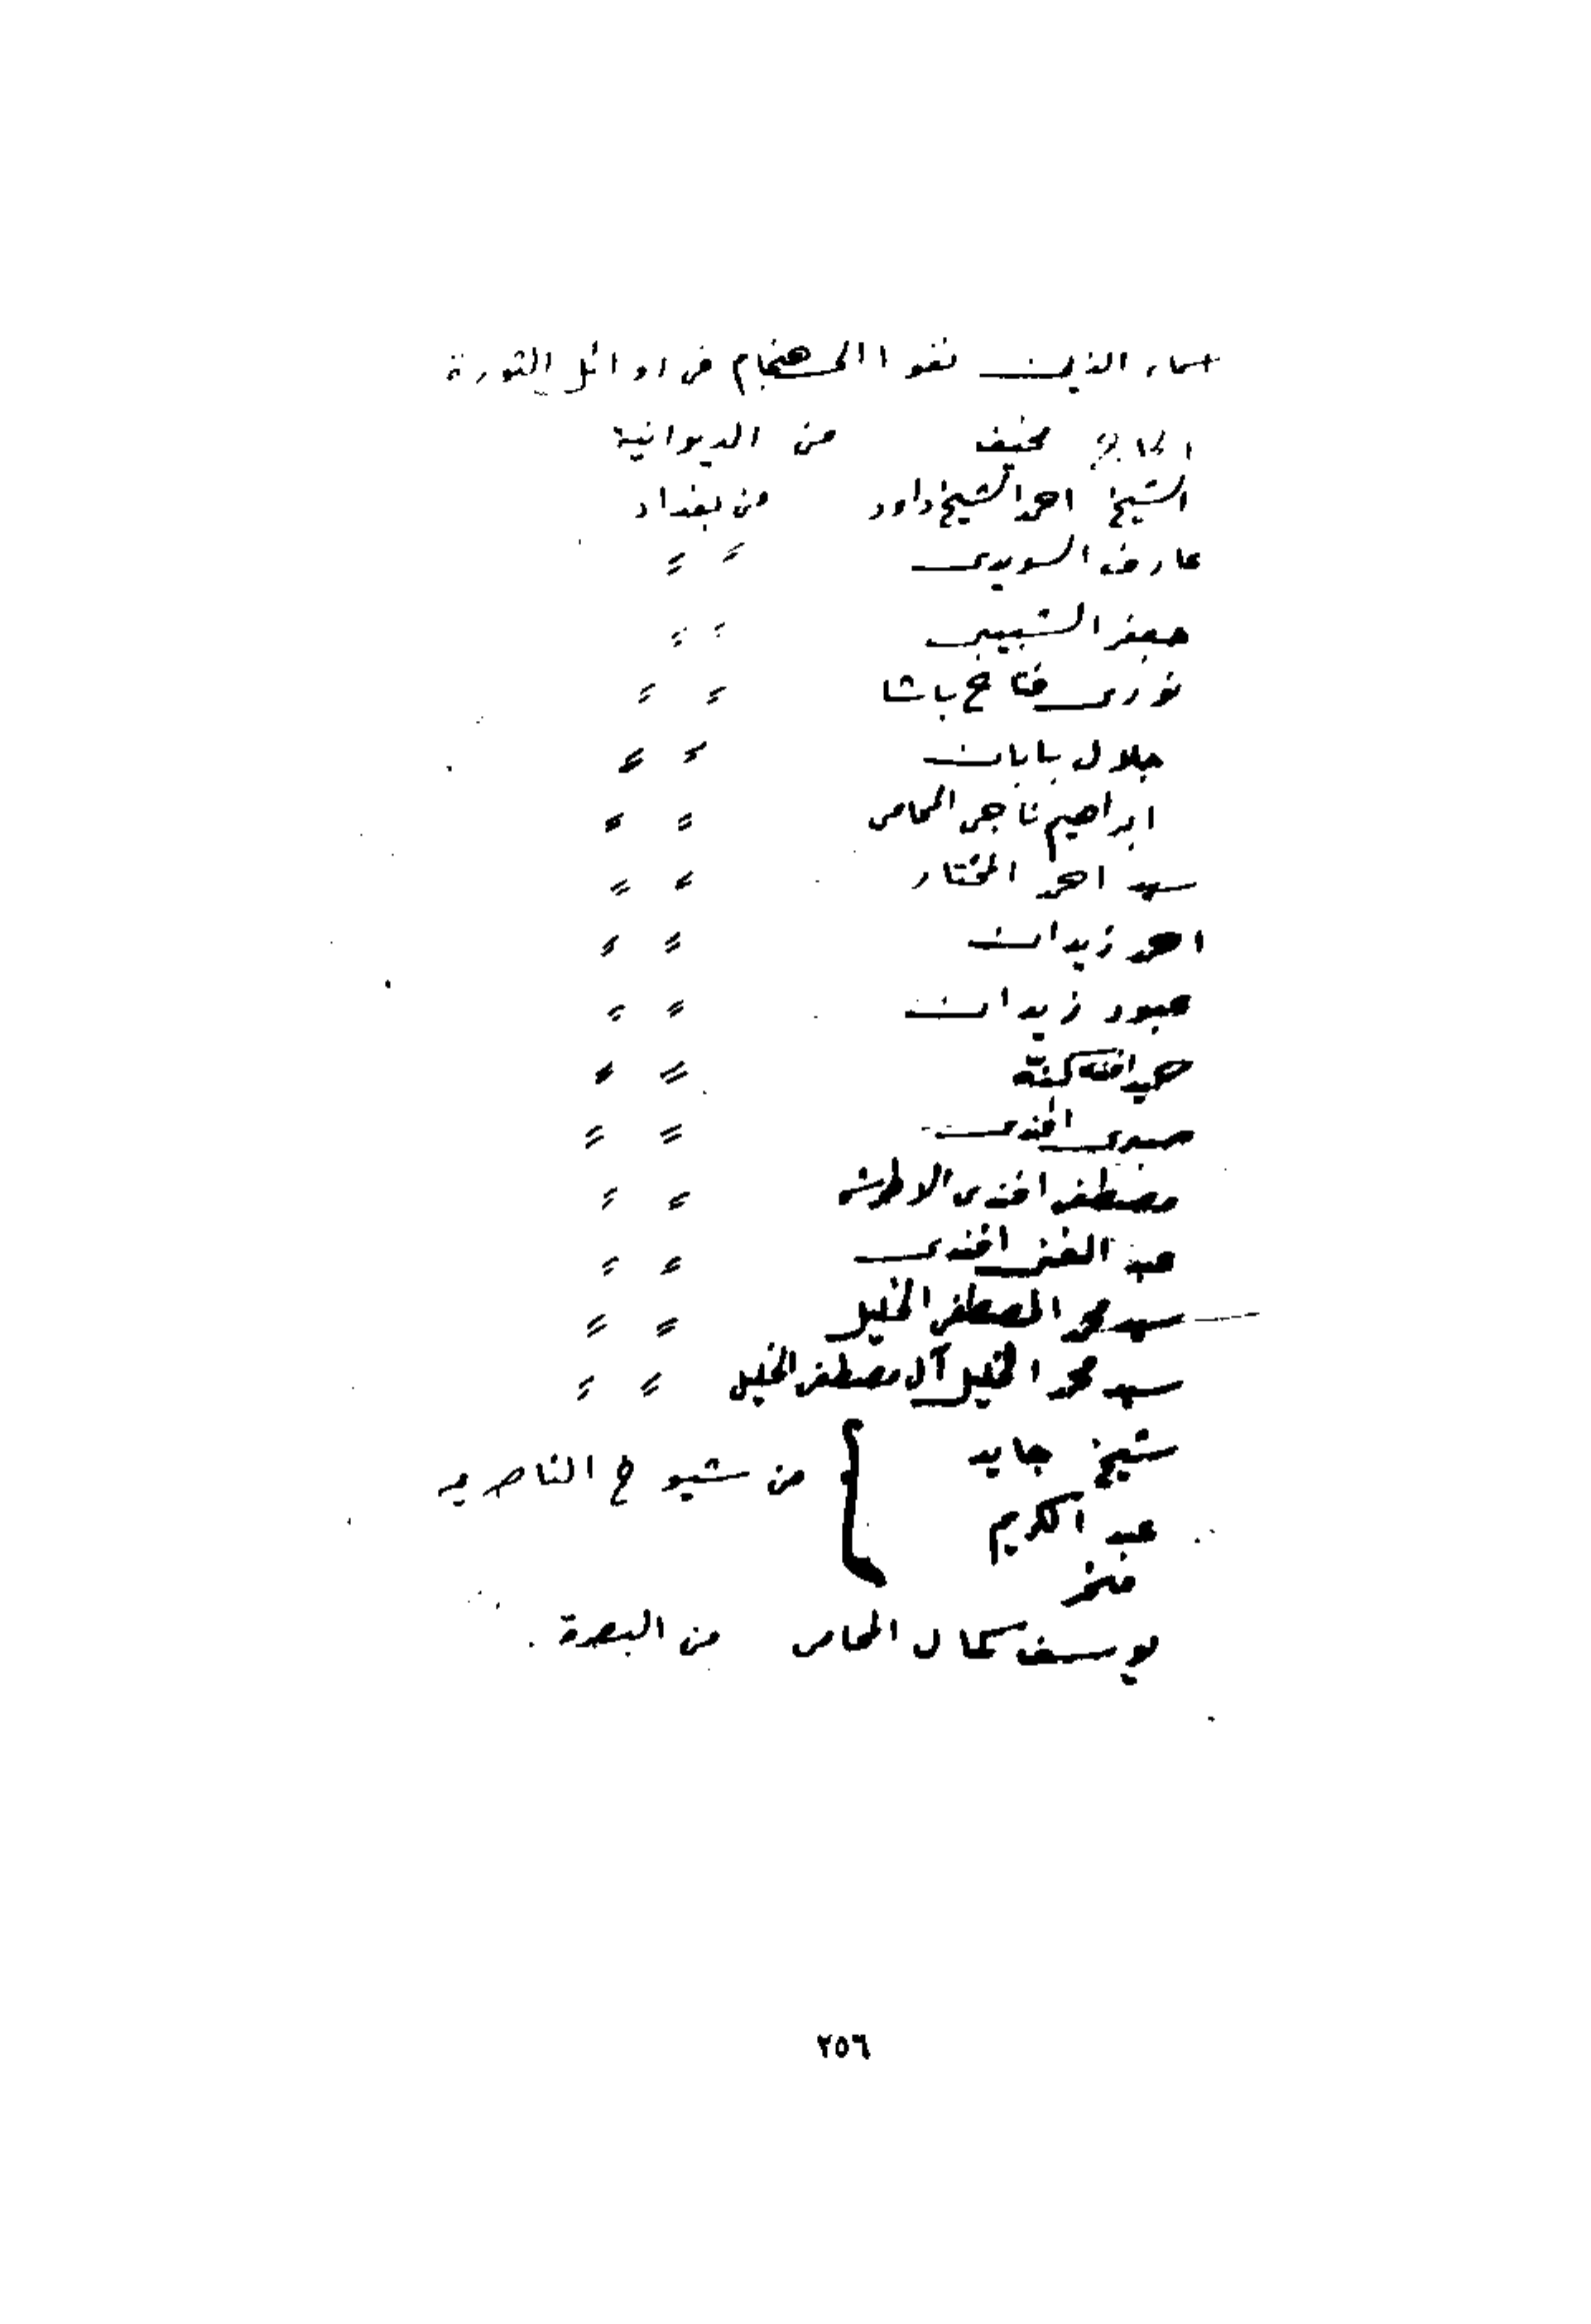 اسماء الذين نفوا الى هنجام في اوائل الثورة
الحاج مخيف من الديوانية
الشيخ احمد الشيخ داود من بغداد
عارف السويدى " "
جعفر الشبيبى " "
نورى فتاح باشا " "
جلال بابان " "
ابراهيم ناجى المحامى " "
سيد احمد المختار " "
احمد زيدان " "
عبود زيدان " "
كنه " "
صبرى افندى " "
مصطفى افندى الاطرش " "
عبد الغنى افندى " "
سيد محمد المصطفى الخليل " "
سيد محمد الخليل آل مصطفى الخليل " "
شيخ جايد
عبد الكريم } من شيوخ الناصريه
يوسف كمال المحامى من البصرة .
٢٥٦